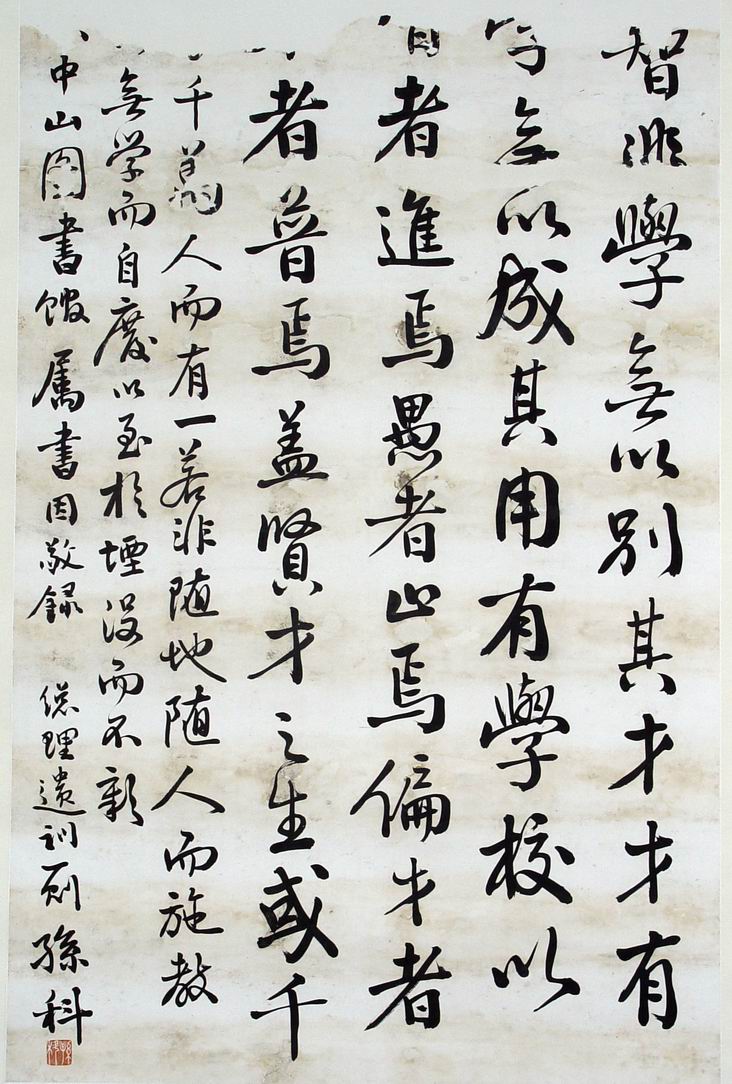 智非學無以別其才才有
学無以成其用有學校以
者進焉愚者止焉偏才者
者普焉盖賢才之生或千
千萬人而有一若非随地随人而施教
無学而自廢以至於堙没而不彰
中山图書館屬書因敬録 總理遺訓一則 孫科